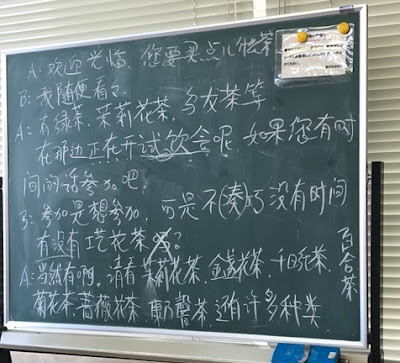 A：欢迎光临。您要买点儿什么茶
B：我随便看看。
A：有绿茶，茉莉花茶，乌龙茶等
在那边正在开试饮会呢。如果您有时
间的话参加吧。
B：参加是想参加，可是不凑巧没有时间
有没有工艺花茶？
A：当然有啊。请看 茉莉花茶，金盏花茶，千日红茶，百合茶
菊花茶，蔷薇花茶，东方馨茶，还有许多种类